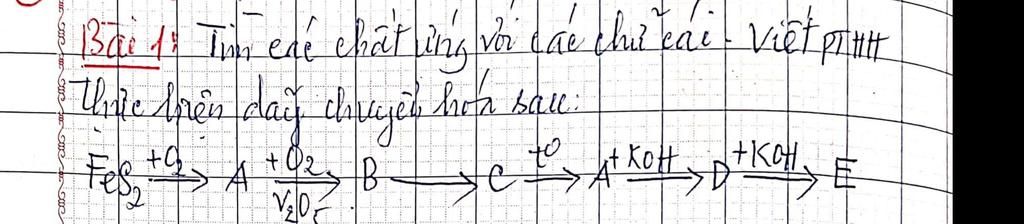 Bài 1: Tìm các chất ứng với các chữ cái - Viết PTHH
thực hiện dãy chuyển hoá sau:
FeS₂ +O₂→ A +O₂ V₂O₅→ B → C t⁰→ A +KOH→ D +KOH→ E